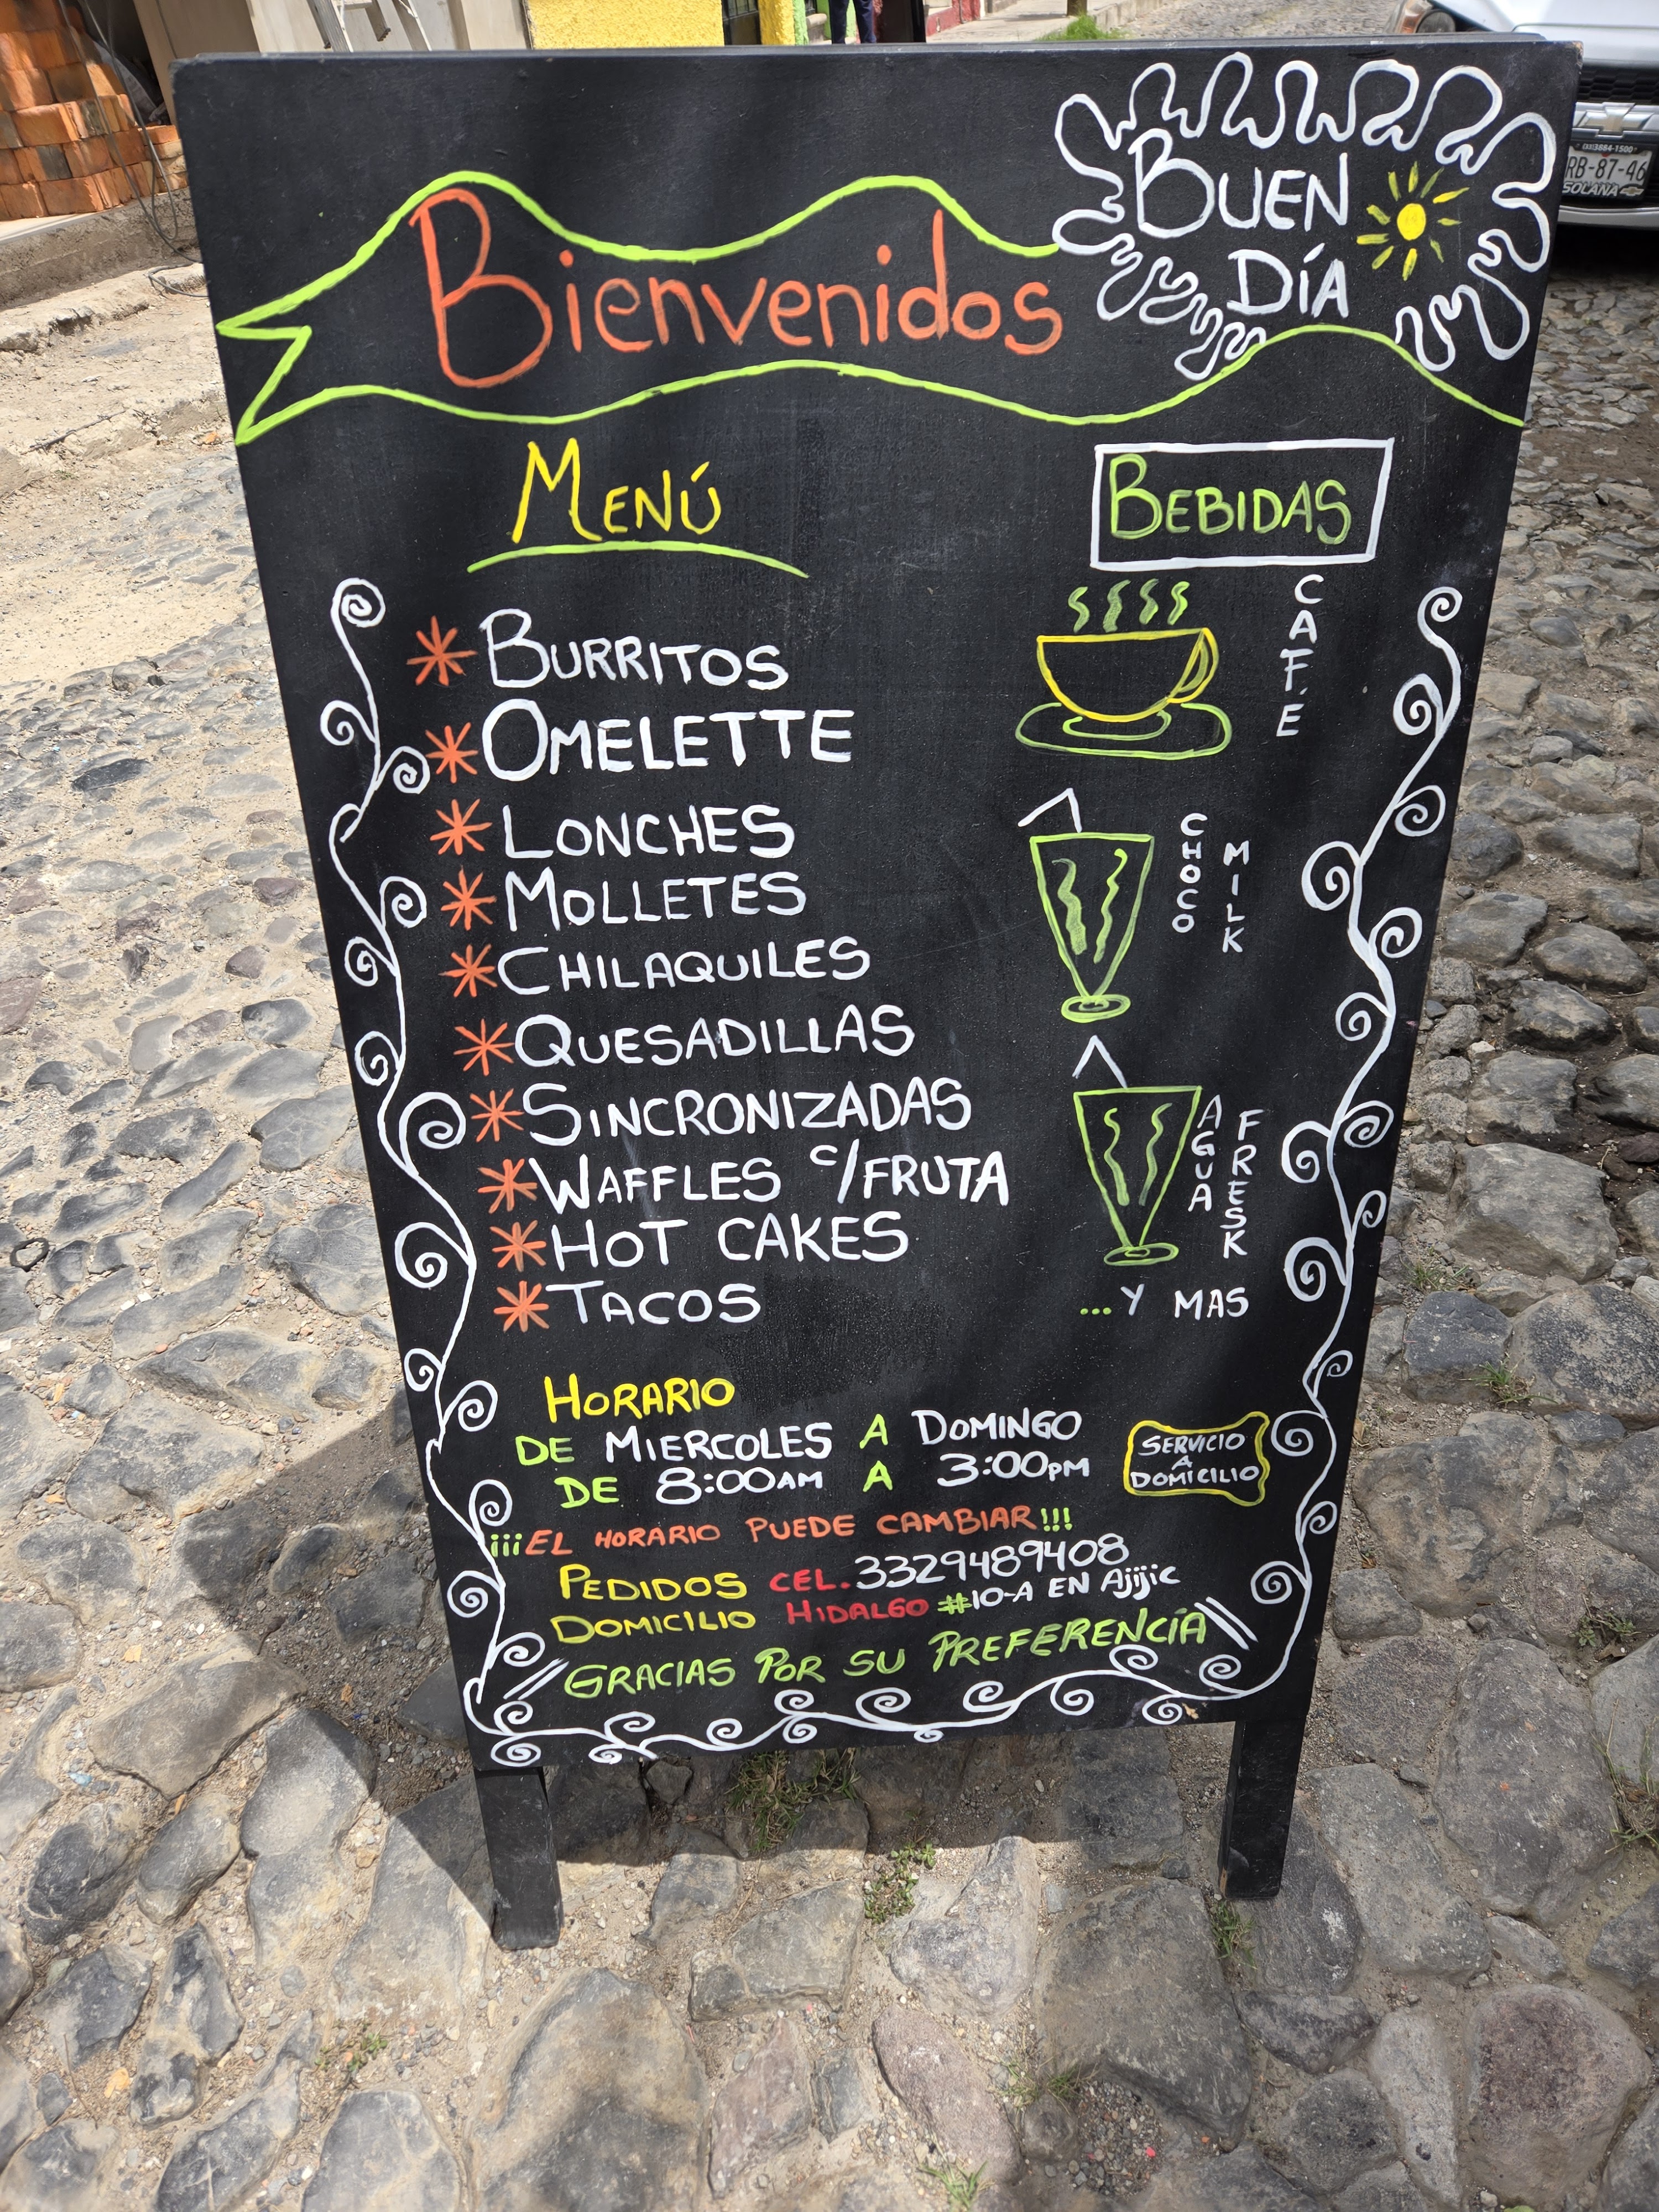 Bienvenidos
BUEN
DÍA
MENÚ
BURRITOS
OMELETTE
LONCHES
MOLLETES
CHILAQUILES
QUESADILLAS
SINCRONIZADAS
WAFFLES c/FRUTA
HOT CAKES
TACOS
BEBIDAS
CAFE
CHOCO
MILK
AGUA
FRESK
...Y MAS
HORARIO
DE MIERCOLES A DOMINGO
DE 8:00AM A 3:00PM
SERVICIO
A
DOMICILIO
¡¡¡EL HORARIO PUEDE CAMBIAR!!!
PEDIDOS CEL. 3329489408
DOMICILIO HIDALGO #10-A EN Ajijic
// GRACIAS POR SU PREFERENCÍA \\
(33)3884-1500
RB-87-46
SOLANA